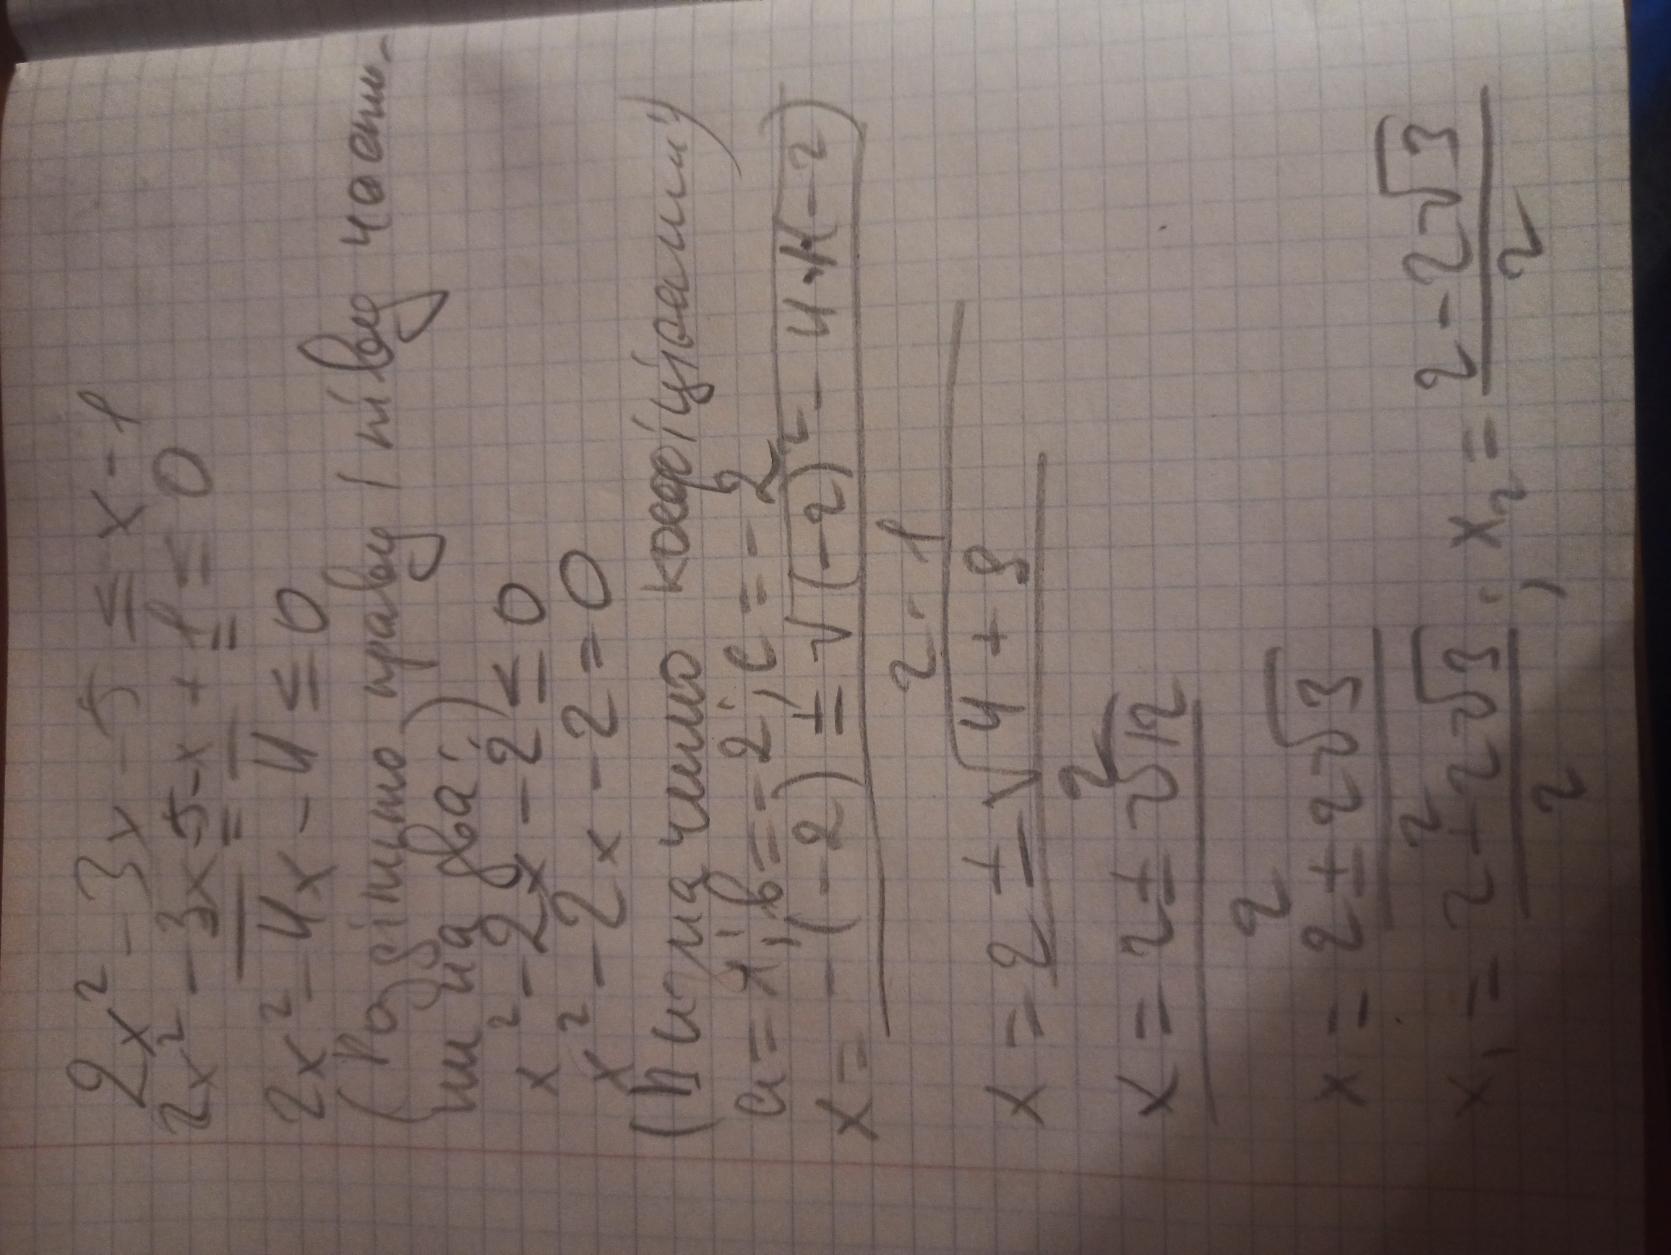 2x² - 3x - 5 ≤ x - 1
2x² - 3x - 5 - x + 1 ≤ 0
2x² - 4x - 4 ≤ 0
(Розділимо праву і ліву части-
ни на два:)
x² - 2x - 2 ≤ 0
x² - 2x - 2 = 0
(Позначимо коефіцієнти)
a = 1; b = -2; c = -2
x = -(-2) ± √(-2)² - 4·1(-2)
2·1
x = 2 ± √4 + 8
2
x = 2 ± √12
2
x = 2 ± 2√3
2
x₁ = 2 + 2√3 ; x₂ = 2 - 2√3
2 2